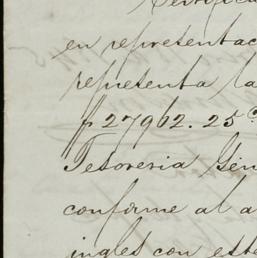 en representac
representa la
$ 27962.25 c
Tesoreria Gen
conforme al a
ingles con este